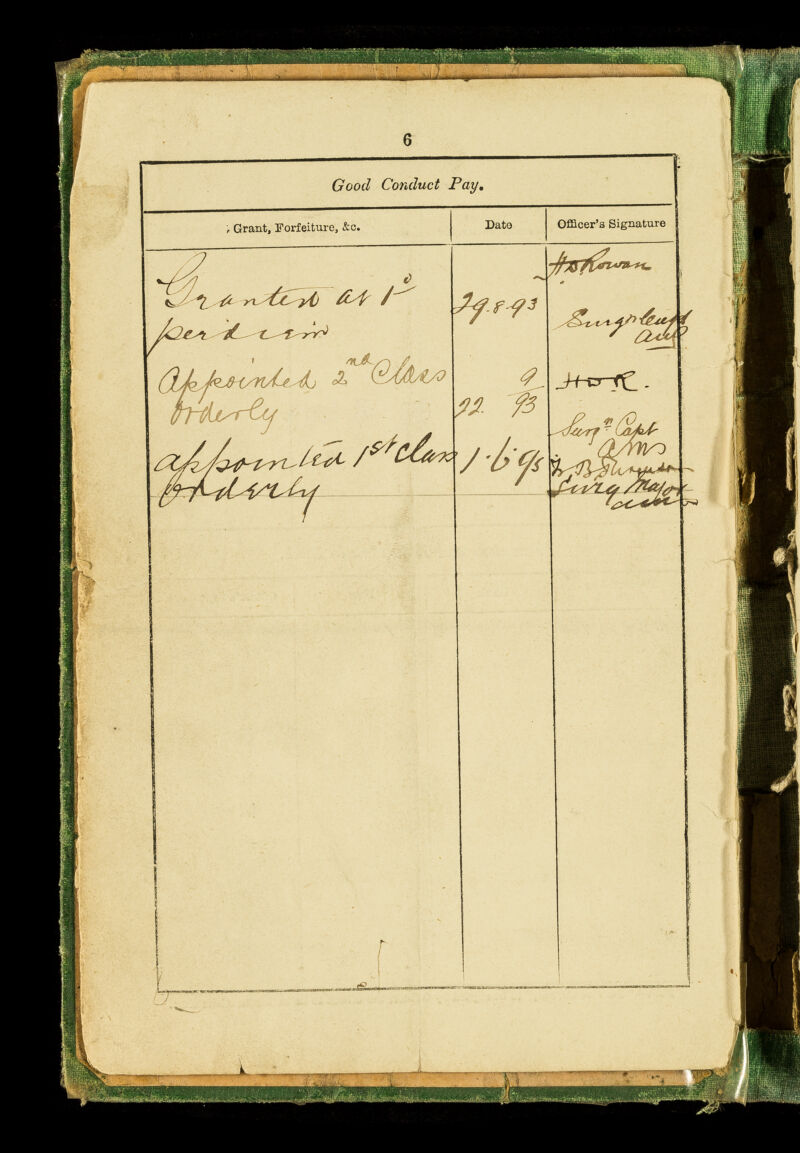 6
Good Conduct Pay.
Grant, Forfeiture, &c. Date Officer's Signature
H D Rowan
Granted at 1d 29.8.93
per diem Surgn Capt
Appointed 2nd Class 9 H D R.
Orderly 22. 93
Surgn Capt
AMS
appointed 1st class 1.6.95
Orderly Surg Major